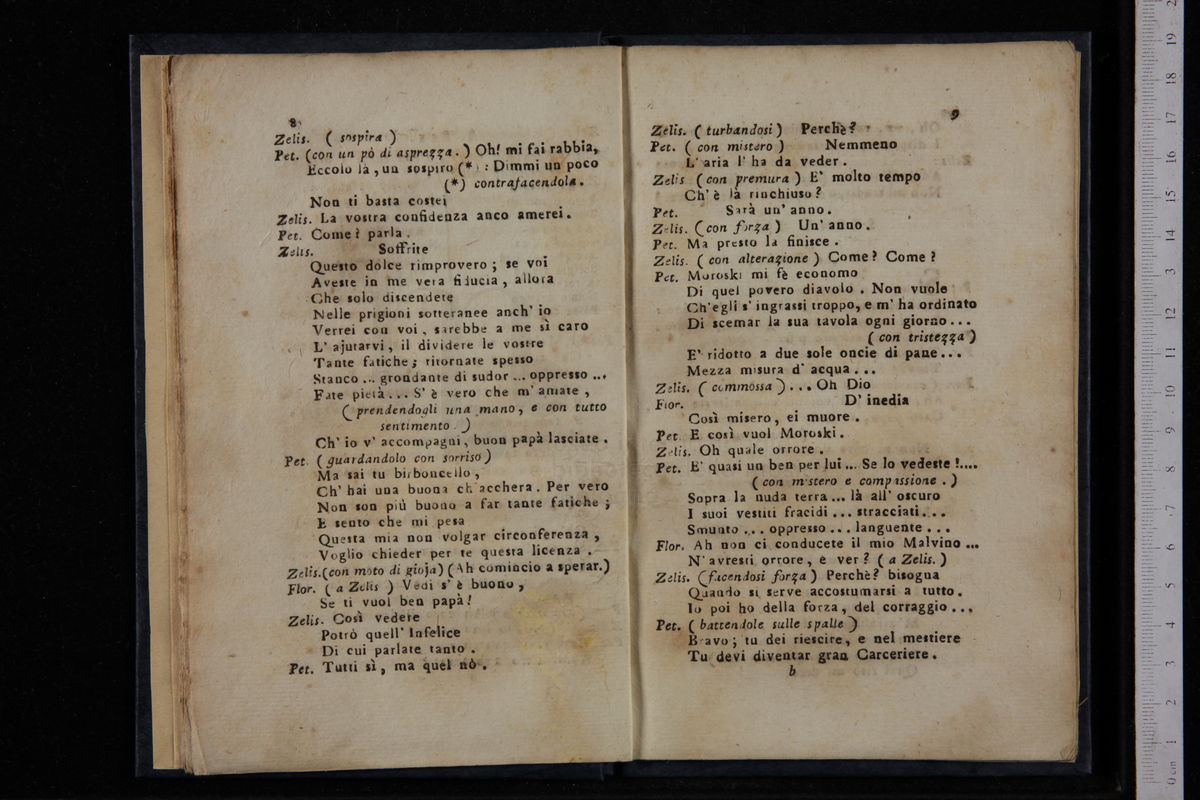 8
Zelis. ( sospira )
Pet. (con un pò di asprezza . ) Oh! mi fai rabbia,
Eccolo là , un sospiro (*) : Dimmi un poco
(*) contrafacendola .
Non ti basta costei
Zelis. La vostra confidenza anco amerei .
Pet. Come ? parla .
Zelis. Soffrite
Questo dolce rimprovero ; se voi
Aveste in me vera fiducia , allora
Che solo discendete
Nelle prigioni sotteranee anch' io
Verrei con voi , sarebbe a me sì caro
L' ajutarvi , il dividere le vostre
Tante fatiche ; ritornate spesso
Stanco ... grondante di sudor ... oppresso ...
Fate pietà ... S' è vero che m' amate ,
( prendendogli una mano , e con tutto
sentimento . )
Ch' io v' accompagni , buon papà lasciate .
Pet. ( guardandolo con sorriso )
Ma sai tu birboncello ,
Ch' hai una buona chiacchera . Per vero
Non son più buono a far tante fatiche ;
E sento che mi pesa
Questa mia non volgar circonferenza ,
Voglio chieder per te questa licenza .
Zelis. (con moto di gioja) (Ah comincio a sperar.)
Flor. ( a Zelis ) Vedi s' è buono ,
Se ti vuol ben papà !
Zelis. Così vedere
Potrò quell' Infelice
Di cui parlate tanto .
Pet. Tutti sì , ma quel nò .
9
Zelis. ( turbandosi ) Perchè ?
Pet. ( con mistero ) Nemmeno
L' aria l' ha da veder .
Zelis ( con premura ) E' molto tempo
Ch' è là rinchiuso ?
Pet. Sarà un' anno .
Zelis. ( con forza ) Un' anno .
Pet. Ma presto la finisce .
Zelis. ( con alterazione ) Come ? Come ?
Pet. Moroski mi fè economo
Di quel povero diavolo . Non vuole
Ch'egli s' ingrassi troppo, e m' ha ordinato
Di scemar la sua tavola ogni giorno ...
( con tristezza )
E' ridotto a due sole oncie di pane ...
Mezza misura d' acqua ...
Zelis. ( commossa ) . . . Oh Dio
Flor. D' inedia
Così misero , ei muore .
Pet. E così vuol Moroski .
Zelis. Oh quale orrore .
Pet. E' quasi un ben per lui ... Se lo vedeste !....
( con mistero e compassione . )
Sopra la nuda terra ... là all' oscuro
I suoi vestiti fracidi ... stracciati ...
Smunto ... oppresso ... languente ...
Flor. Ah non ci conducete il mio Malvino ...
N' avresti orrore , è ver ? ( a Zelis. )
Zelis. ( facendosi forza ) Perchè? bisogna
Quando si serve accostumarsi a tutto .
Io poi ho della forza , del corraggio ...
Pet. ( battendole sulle spalle )
Bravo ; tu dei riescire , e nel mestiere
Tu devi diventar gran Carceriere .
b
0 cm 1 2 3 4 5 6 7 8 9 10 11 12 13 14 15 16 17 18 19